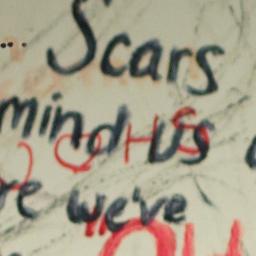 ... Scars
mind us
re we've
OH